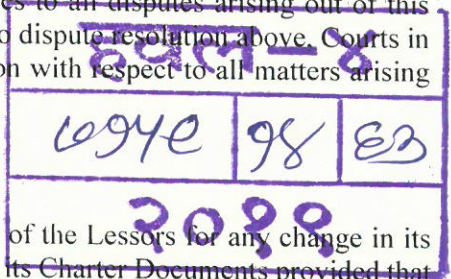 es to all disputes arising out of this
o dispute resolution above. Courts in
हवल - ४
n with respect to all matters arising
७१५९ १४ ६३
२०११
of the Lessors for any change in its
its Charter Documents provided that